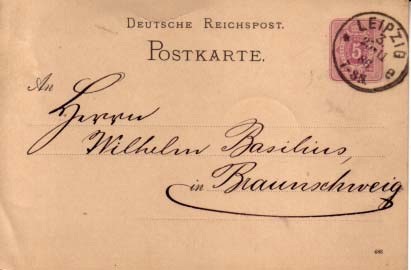 DEUTSCHE REICHSPOST.
POSTKARTE.
LEIPZIG
5
An
Herrn
Wilhelm Basilius,
in Braunschweig